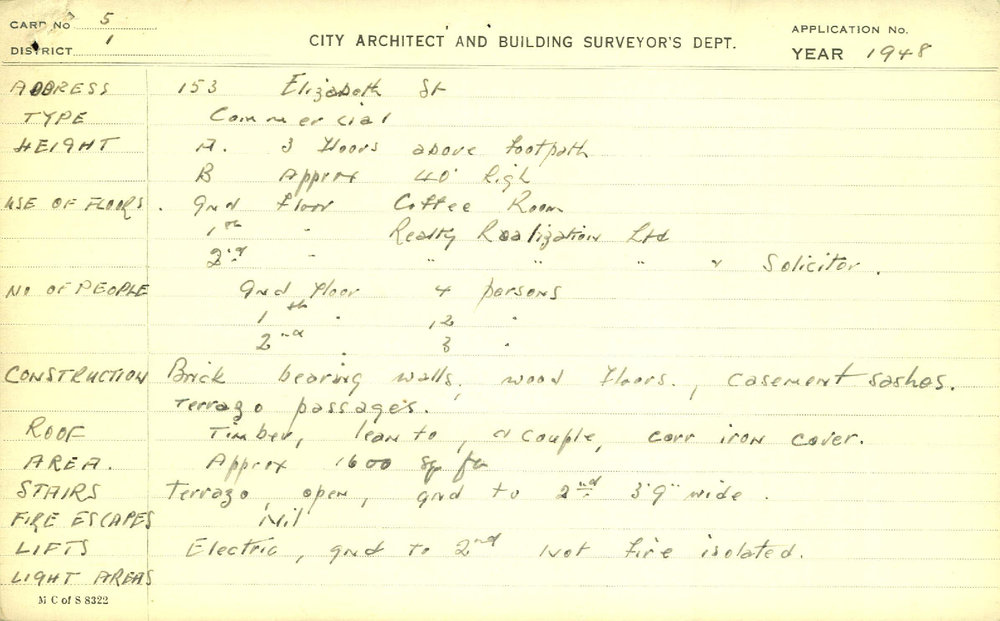 CARD No 5
DISTRICT 1
CITY ARCHITECT AND BUILDING SURVEYOR'S DEPT.
APPLICATION No.
YEAR 1948
ADDRESS 153 Elizabeth St
TYPE Commercial
HEIGHT A. 3 floors above footpath
B Approx 40' high
USE OF FLOORS. Gnd floor Coffee Room
1st " Realty Realization Ltd
2nd " " " " & Solicitor.
No OF PEOPLE Gnd floor 4 persons
1st " 12 "
2nd " 3 "
CONSTRUCTION Brick bearing walls, wood floors, casement sashes.
Terrazo passages.
ROOF Timber, lean to, & couple, corr iron cover.
AREA. Approx 1600 sq ft
STAIRS Terrazo, open, gnd to 2nd 3'9" wide.
FIRE ESCAPES Nil
LIFTS Electric, gnd to 2nd Not fire isolated.
LIGHT AREAS
M C of S 8322